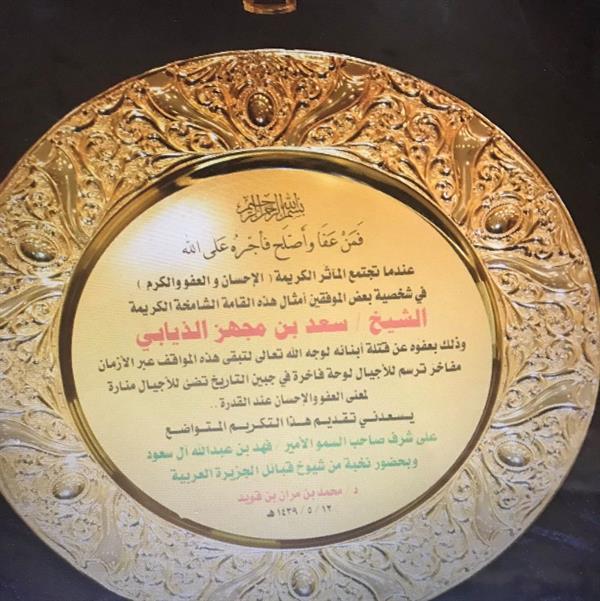 بسم الله الرحمن الرحيم
فَمَنْ عَفَا وَأَصْلَحَ فَأَجْرُهُ عَلَى اللَّه
عندما تجتمع المآثر الكريمة ( الإحسان و العفو والكرم )
في شخصية بعض الموفقين أمثال هذه القامة الشامخة الكريمة
الشيخ / سعد بن مجهز الذيابي
وذلك بعفوه عن قتلة أبنائه لوجه الله تعالى لتبقى هذه المواقف عبر الأزمان
مفاخر ترسم للأجيال لوحة فاخرة في جبين التاريخ تضئ للأجيال منارة
لمعنى العفو والإحسان عند القدرة ..
يسعدني تقديم هذا التكريم المتواضع
على شرف صاحب السمو الأمير / فهد بن عبدالله آل سعود
وبحضور نخبة من شيوخ قبائل الجزيرة العربية
د / محمد بن مران بن قويد
١٢ / ٥ / ١٤٣٩ هـ